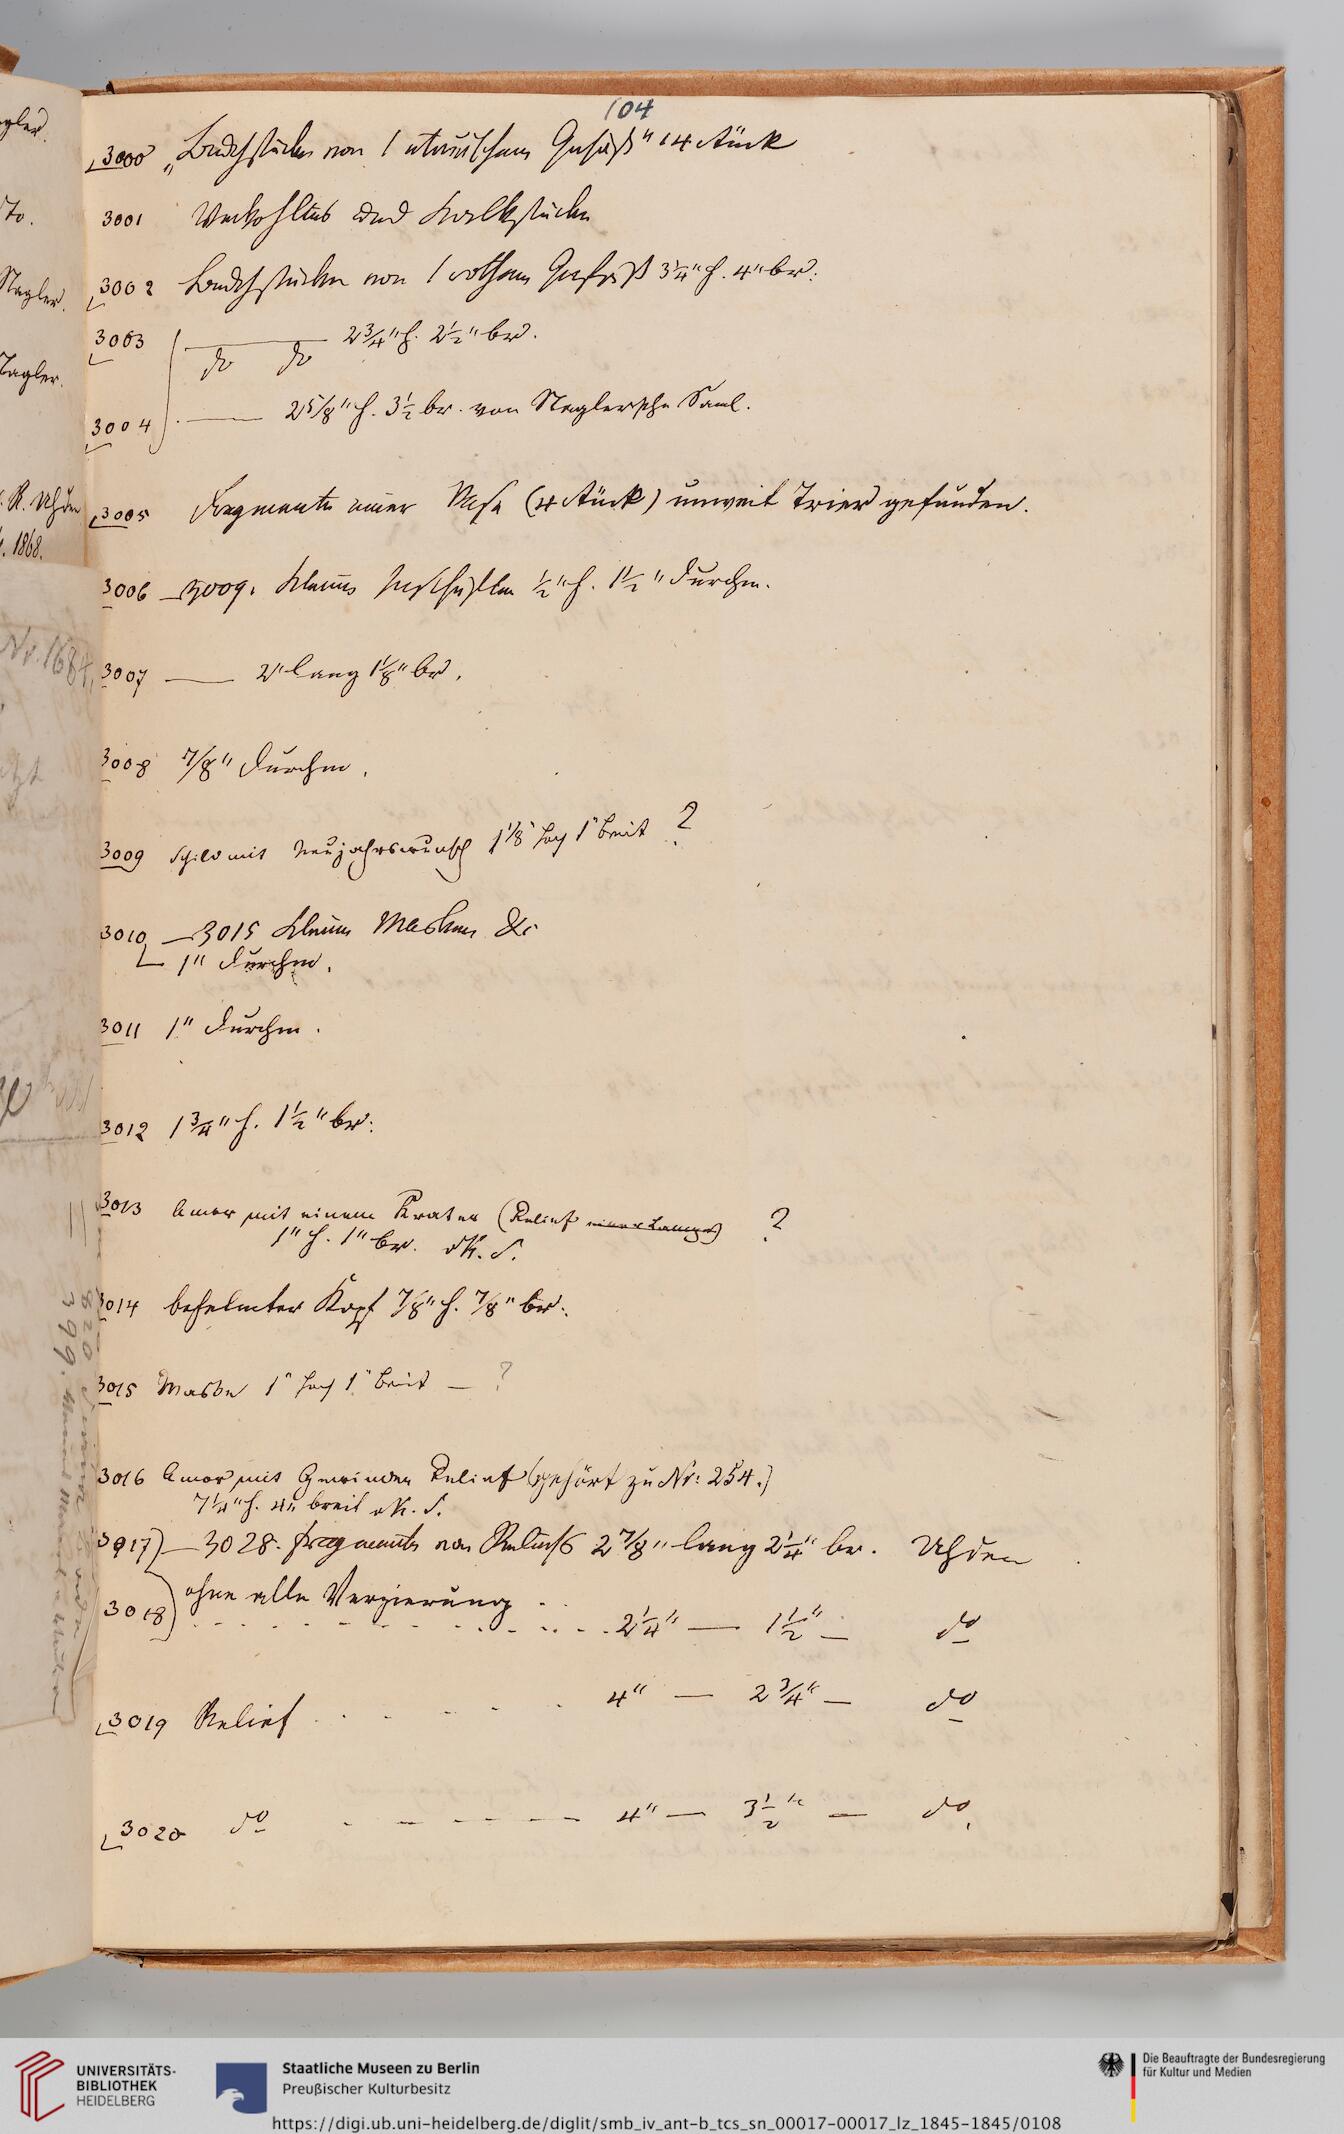 104
3000 „Bruchstücke von 1 etrurischem Gefäß" 14 Stück
3001 Verkohltes und Kalkstücke
3002 Bruchstücke von 1 rothem Gefäß 3¼" h. 4" br:
3003 2¾" h. 2½" br.
do do
3004 2⅝" h. 3½ br. von Naglersche Saml.
3005 Fragmente einer Vase (4 Stück) unweit Trier gefunden.
3006 — 3009. kleine ½" h. 1½" Durchm.
3007 — 2" lang 1⅛" br.
3008 ⅞" Durchm.
3009 Schild mit Neujahrswunsch 1⅛" hoch 1" breit ?
3010 — 3015 kleine Masken &c
1" Durchm.
3011 1" Durchm.
3012 1¾" h. 1½" br:
3013 Amor mit einem Krater (Relief einer Lampe) ?
1" h. 1" br.
3014 behelmter Kopf ⅞" h. ⅞" br.
3015 Maske 1" hoch 1" breit — ?
3016 Amor mit Gewinden Relief (gehört zu Nr: 254.)
7¼" h. 4" breit
3017 — 3028. Fragmente von Reliefs 2⅞" lang 2¼" br. Uhden
ohne alle Verzierung
3018 2¼" — 1½" — do
4" — 2¾" — do
3019 Relief
3020 do 4" — 3½" — do
Nagler.
R. Uhden
1868.
Nr. 1684.
UNIVERSITÄTS-
BIBLIOTHEK
HEIDELBERG
Staatliche Museen zu Berlin
Preußischer Kulturbesitz
Die Beauftragte der Bundesregierung
für Kultur und Medien
https://digi.ub.uni-heidelberg.de/diglit/smb_iv_ant-b_tcs_sn_00017-00017_lz_1845-1845/0108